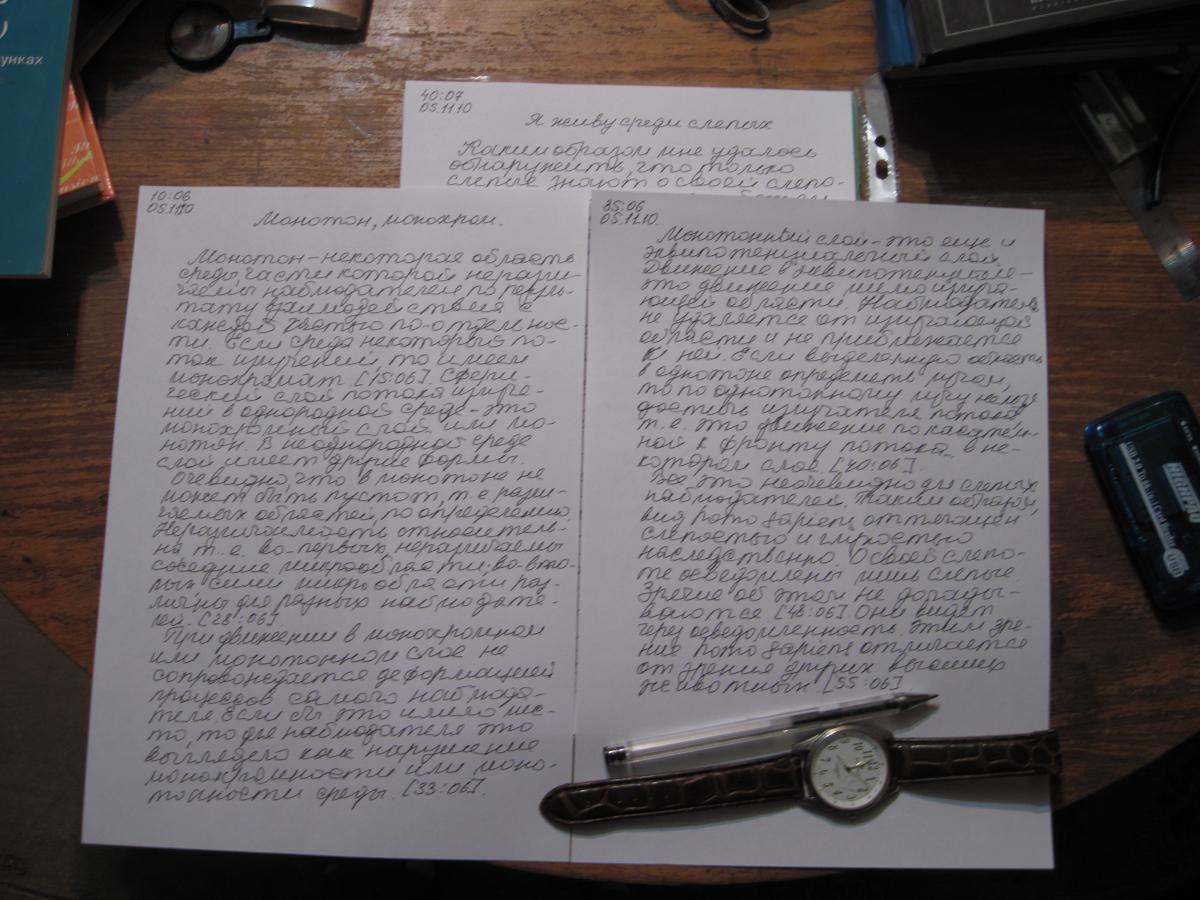 унках
40:07
05.11.10
Я живу среди слепых
Каким образом мне удалось
обнаружить, что только
слепые знают о своей слепо-
10:06
05.11.10
Монотон, монохром.
Монотон - некоторая область
среды, части которой неразли-
чаемы наблюдателем по резуль-
тату взаимодействия с
каждой частью по-отдельнос-
ти. Если среда некоторый по-
ток излучений то имеем
монохромат. [15:06]. Сфери-
ческий слой потока излуче-
ний в однородной среде - это
монохромный слой или мо-
нотон. В неоднородной среде
слой имеет другие формы.
Очевидно, что в монотоне не
может быть пустот, т.е. разли-
чаемых областей, по определению.
Неразличаемость относитель-
на т.е. во-первых, неразличаемы
соседние микрообласти; во-вто-
рых сами микрообласти раз-
личны для разных наблюдате-
лей. [28:06].
При движении в монохромном
или монотонном слое не
сопровождается деформацией
процессов самого наблюда-
теля. Если бы это имело мес-
то, то для наблюдателя это
выглядело как нарушение
монохромности или моно-
тонности среды. [33:06].
35:06
05.11.10
Монотонный слой - это еще и
эквипотенциальный слой.
Движение в эквипотенциале -
это движение мимо излуча-
ющей области. Наблюдатель
не удаляется от излучающей
области и не приближается
к ней. Если выделенную область
в однотоне определить лучом,
то по однотонному лучу нельзя
достичь излучателя потока,
т.е. это движение по касатель-
ной к фронту потока в не-
котором слое. [40:06].
Все это неочевидно для слепых
наблюдателей. Таким образом,
вид homo sapiens отягощен
слепотой и глухотой
наследственно. О своей слепо-
те осведомлены лишь слепые.
Зрячие об этом не догады-
ваются. [48:06] Они видят
через осведомленность. Этим зре-
ние homo sapiens отличается
от зрения других высших
животных. [55:06]